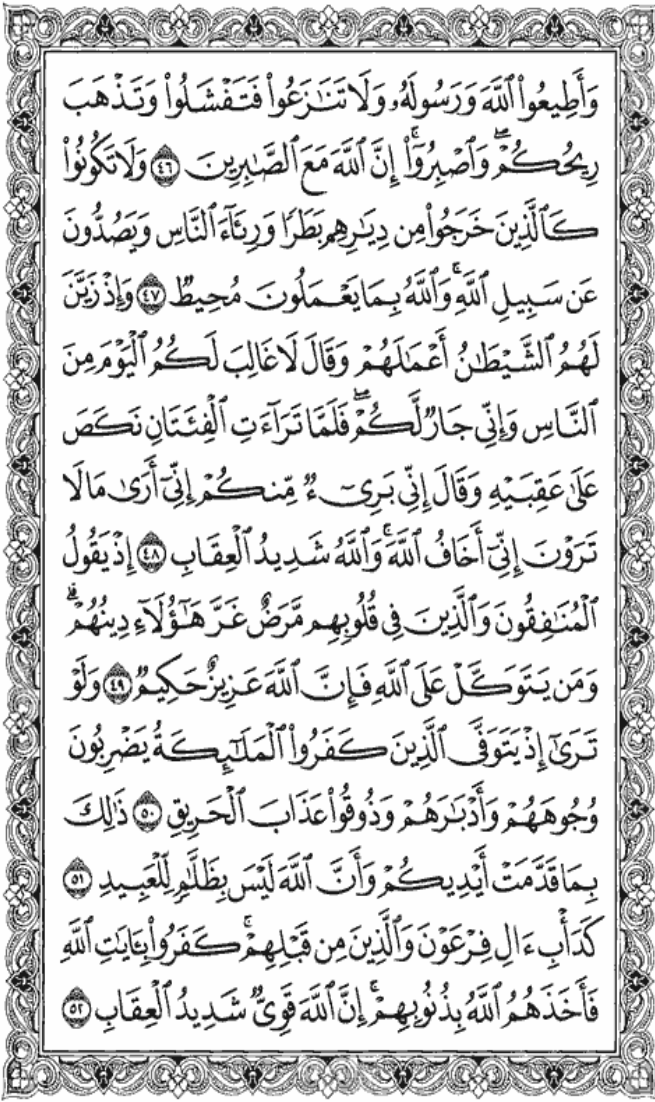 وَأَطِيعُوا۟ ٱللَّهَ وَرَسُولَهُۥ وَلَا تَنَـٰزَعُوا۟ فَتَفْشَلُوا۟ وَتَذْهَبَ
رِيحُكُمْ ۖ وَٱصْبِرُوٓا۟ ۚ إِنَّ ٱللَّهَ مَعَ ٱلصَّـٰبِرِينَ ٤٦ وَلَا تَكُونُوا۟
كَٱلَّذِينَ خَرَجُوا۟ مِن دِيَـٰرِهِم بَطَرًا وَرِئَآءَ ٱلنَّاسِ وَيَصُدُّونَ
عَن سَبِيلِ ٱللَّهِ ۚ وَٱللَّهُ بِمَا يَعْمَلُونَ مُحِيطٌ ٤٧ وَإِذْ زَيَّنَ
لَهُمُ ٱلشَّيْطَـٰنُ أَعْمَـٰلَهُمْ وَقَالَ لَا غَالِبَ لَكُمُ ٱلْيَوْمَ مِنَ
ٱلنَّاسِ وَإِنِّى جَارٌ لَّكُمْ ۖ فَلَمَّا تَرَآءَتِ ٱلْفِئَتَانِ نَكَصَ
عَلَىٰ عَقِبَيْهِ وَقَالَ إِنِّى بَرِىٓءٌ مِّنكُمْ إِنِّىٓ أَرَىٰ مَا لَا
تَرَوْنَ إِنِّىٓ أَخَافُ ٱللَّهَ ۚ وَٱللَّهُ شَدِيدُ ٱلْعِقَابِ ٤٨ إِذْ يَقُولُ
ٱلْمُنَـٰفِقُونَ وَٱلَّذِينَ فِى قُلُوبِهِم مَّرَضٌ غَرَّ هَـٰٓؤُلَآءِ دِينُهُمْ ۗ
وَمَن يَتَوَكَّلْ عَلَى ٱللَّهِ فَإِنَّ ٱللَّهَ عَزِيزٌ حَكِيمٌ ٤٩ وَلَوْ
تَرَىٰٓ إِذْ يَتَوَفَّى ٱلَّذِينَ كَفَرُوا۟ ٱلْمَلَـٰٓئِكَةُ يَضْرِبُونَ
وُجُوهَهُمْ وَأَدْبَـٰرَهُمْ وَذُوقُوا۟ عَذَابَ ٱلْحَرِيقِ ٥٠ ذَٰلِكَ
بِمَا قَدَّمَتْ أَيْدِيكُمْ وَأَنَّ ٱللَّهَ لَيْسَ بِظَلَّـٰمٍ لِّلْعَبِيدِ ٥١
كَدَأْبِ ءَالِ فِرْعَوْنَ وَٱلَّذِينَ مِن قَبْلِهِمْ ۚ كَفَرُوا۟ بِـَٔايَـٰتِ ٱللَّهِ
فَأَخَذَهُمُ ٱللَّهُ بِذُنُوبِهِمْ ۗ إِنَّ ٱللَّهَ قَوِىٌّ شَدِيدُ ٱلْعِقَابِ ٥٢